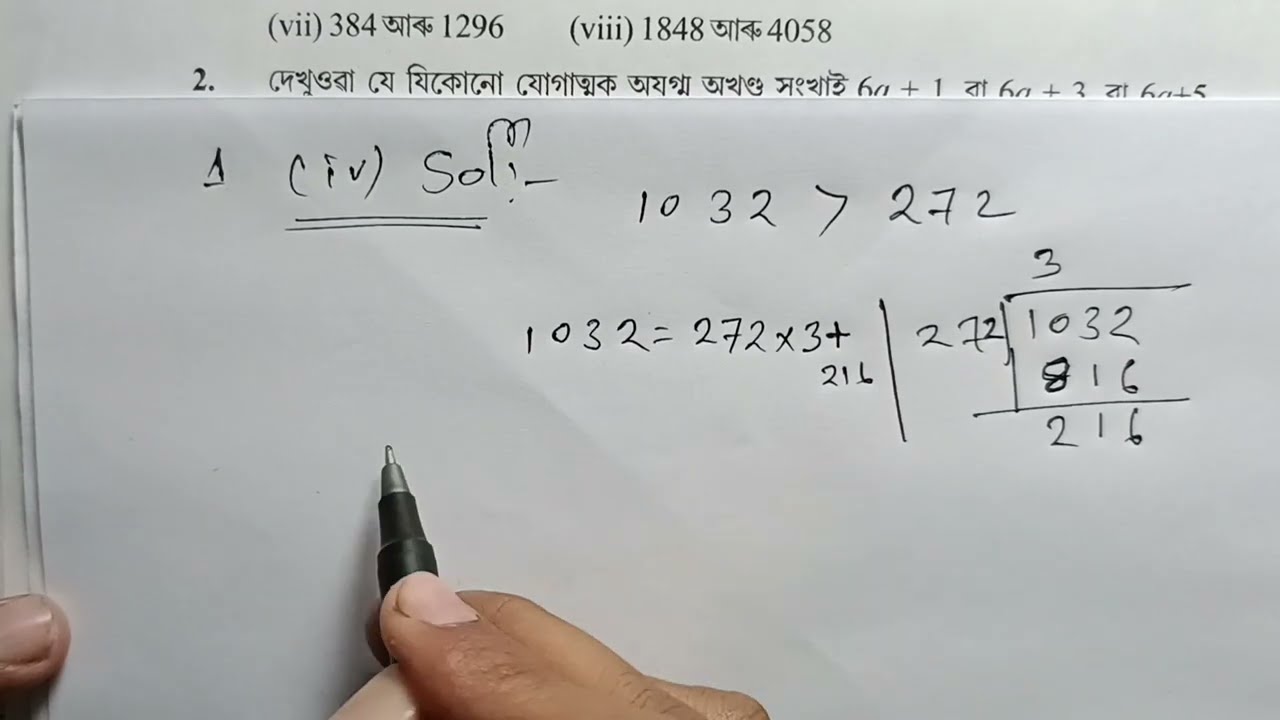 (vii) 384 আৰু 1296 (viii) 1848 আৰু 4058
2. দেখুওৱা যে যিকোনো যোগাত্মক অযুগ্ম অখণ্ড সংখ্যাই 6q + 1 বা 6q + 3 বা 6q+5
1 (iv) Solⁿ:-
1032 > 272
3
1032 = 272 × 3 + 216
272 1032
816
216